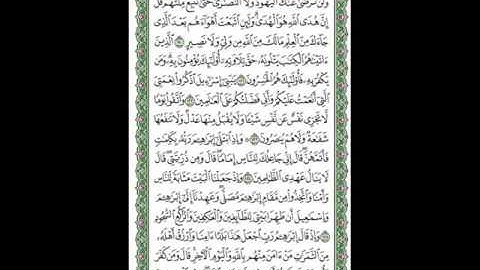 ولن ترضى عنك اليهود ولا النصارى حتى تتبع ملتهم قل
إن هدى الله هو الهدى ولئن اتبعت أهواءهم بعد الذي
جاءك من العلم ما لك من الله من ولي ولا نصير ١٢٠ الذين
ءاتيناهم الكتاب يتلونه حق تلاوته أولئك يؤمنون به ومن
يكفر به فأولئك هم الخاسرون ١٢١ يابني إسراءيل اذكروا نعمتي
التي أنعمت عليكم وأني فضلتكم على العالمين ١٢٢ واتقوا يوما
لا تجزي نفس عن نفس شيئا ولا يقبل منها عدل ولا تنفعها
شفاعة ولا هم ينصرون ١٢٣ وإذ ابتلى إبراهيم ربه بكلمات
فأتمهن قال إني جاعلك للناس إماما قال ومن ذريتي قال
لا ينال عهدي الظالمين ١٢٤ وإذ جعلنا البيت مثابة للناس
وأمنا واتخذوا من مقام إبراهيم مصلى وعهدنا إلى إبراهيم
وإسماعيل أن طهرا بيتي للطائفين والعاكفين والركع السجود
١٢٥ وإذ قال إبراهيم رب اجعل هذا بلدا ءامنا وارزق أهله
من الثمرات من ءامن منهم بالله واليوم الآخر قال ومن كفر